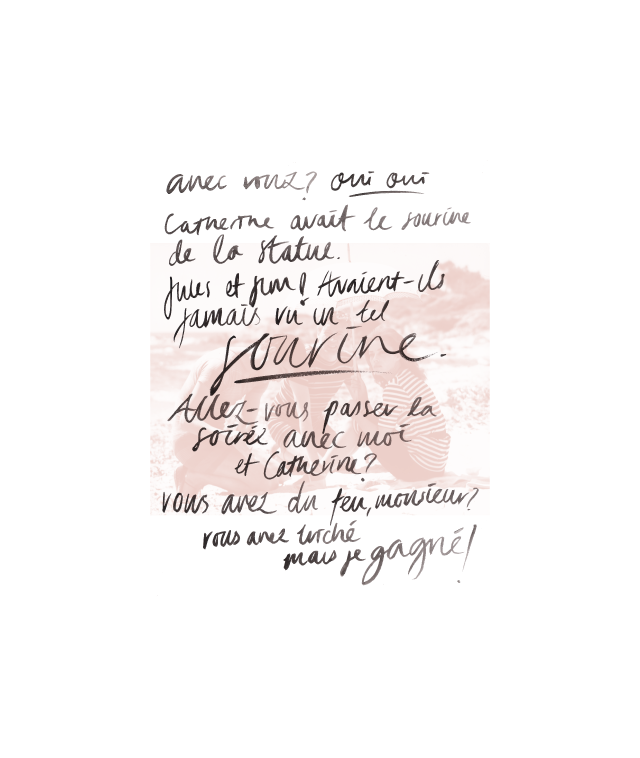 avec vouz? oui oui
Catherine avait le sourine
de la statue.
Jules et Jim! Avaient-ils
jamais vu un tel
sourine.
Allez-vous passer la
soirée avec moi
et Catherine?
vous avez du feu, monsieur?
vous avez turché
mais je gagné!